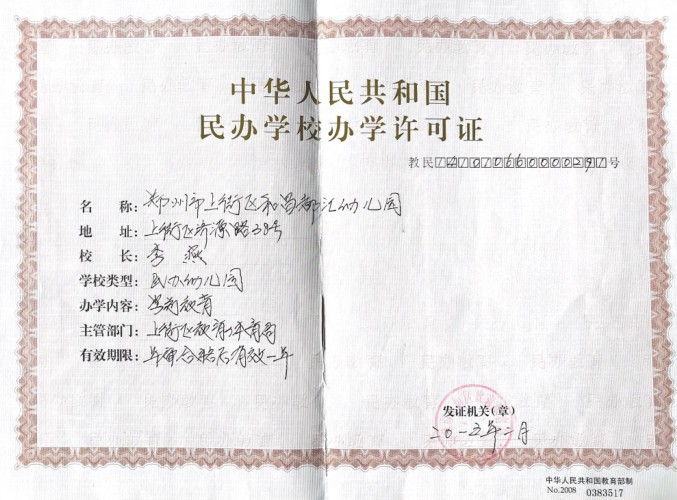 中华人民共和国
民办学校办学许可证
教民号
名 称：郑州市上街区和昌都汇幼儿园
地 址：上街区济源路38号
校 长：李燕
学校类型：民办幼儿园
办学内容：学前教育
主管部门：上街区教育体育局
有效期限：年审合格后有效一年
发证机关（章）
二〇一五年二月
中华人民共和国教育部制
No.2008 0383517